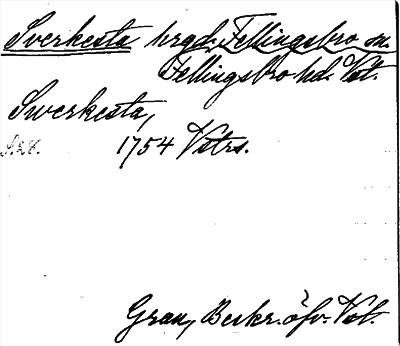 Sverkesta hrgd. Fellingsbro sn.
Fellingsbro hd. Vst.
Swerkesta,
1754 Vstrs.
S. 28.
Grau, Beskr. öfv. Vst.